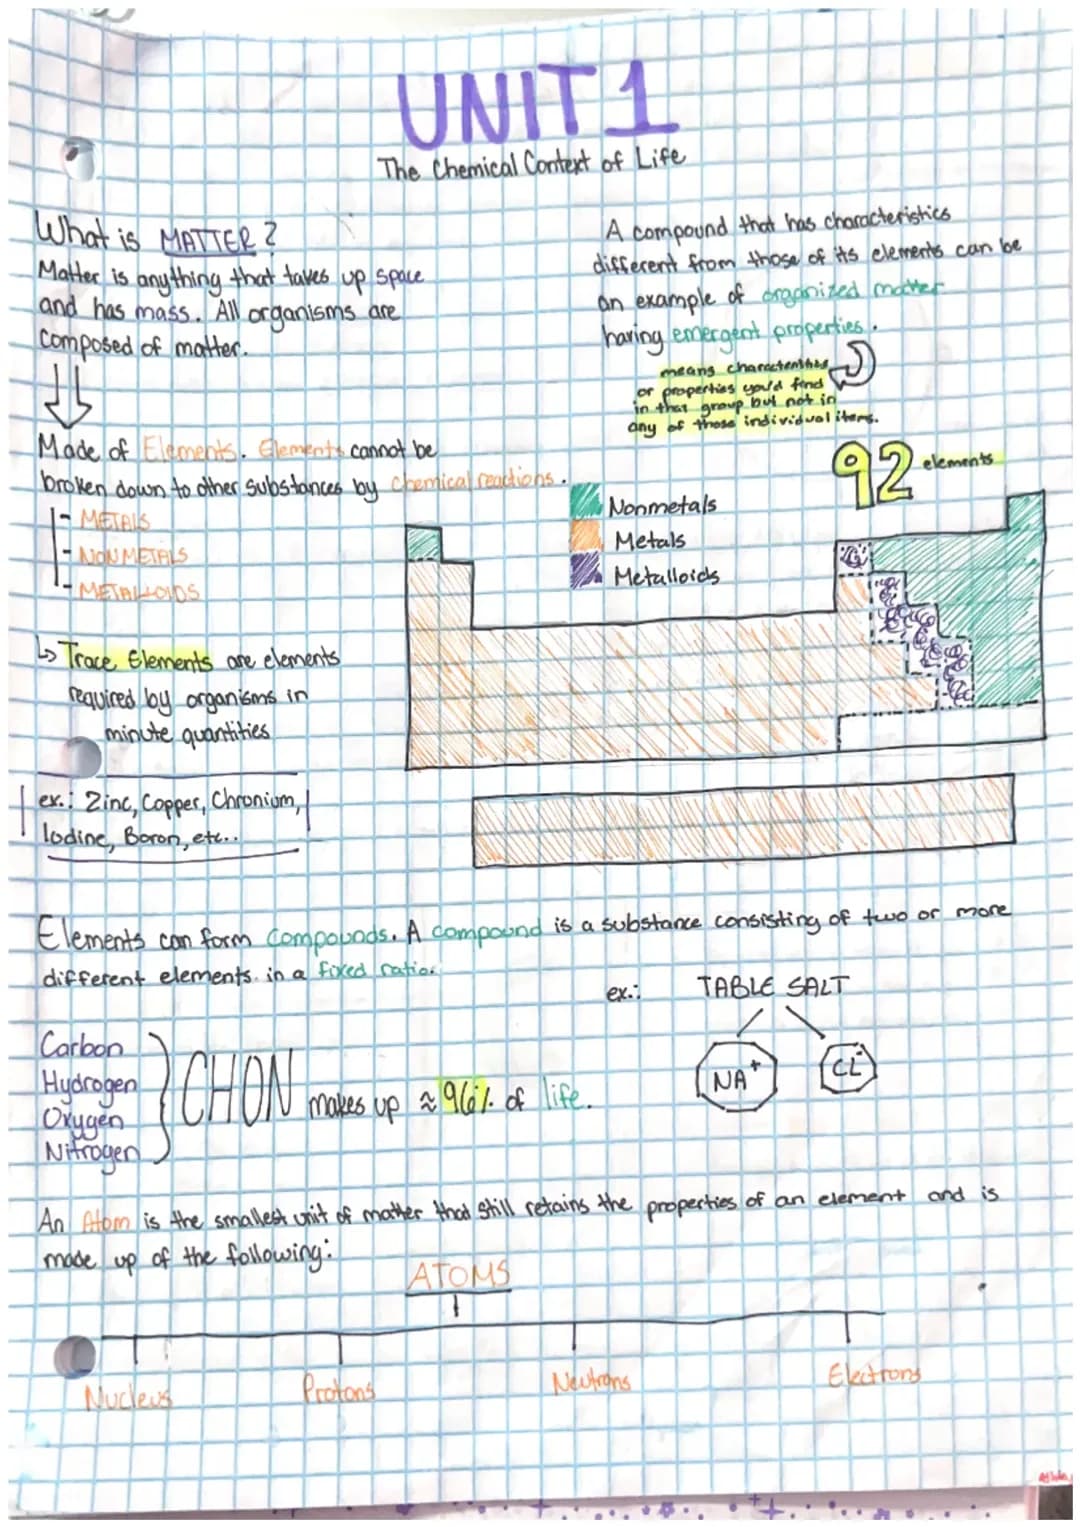 UNIT 1
The Chemical Context of Life
What is MATTER?
Matter is anything that takes up space
and has mass. All organisms are
composed of matter.
A compound that has characteristics
different from those of its elements can be
an example of organized matter
having emergent properties.
means characteristics
or properties you'd find
in that group but not in
any of those individual items.
Made of Elements. Elements cannot be
broken down to other substances by chemical reactions.
- METALS
- NONMETALS
- METALLOIDS
92 elements
Nonmetals
Metals
Metalloids
↳ Trace Elements are elements
required by organisms in
minute quantities
ex.: Zinc, Copper, Chronium,
Iodine, Boron, etc..
Elements can form compounds. A compound is a substance consisting of two or more
different elements in a fixed ratio.
ex.: TABLE SALT
NA+ CL-
Carbon
Hydrogen
Oxygen
Nitrogen
CHON makes up ≈ 96% of life.
An Atom is the smallest unit of matter that still retains the properties of an element and is
made up of the following:
ATOMS
Nucleus Protons Neutrons Electrons